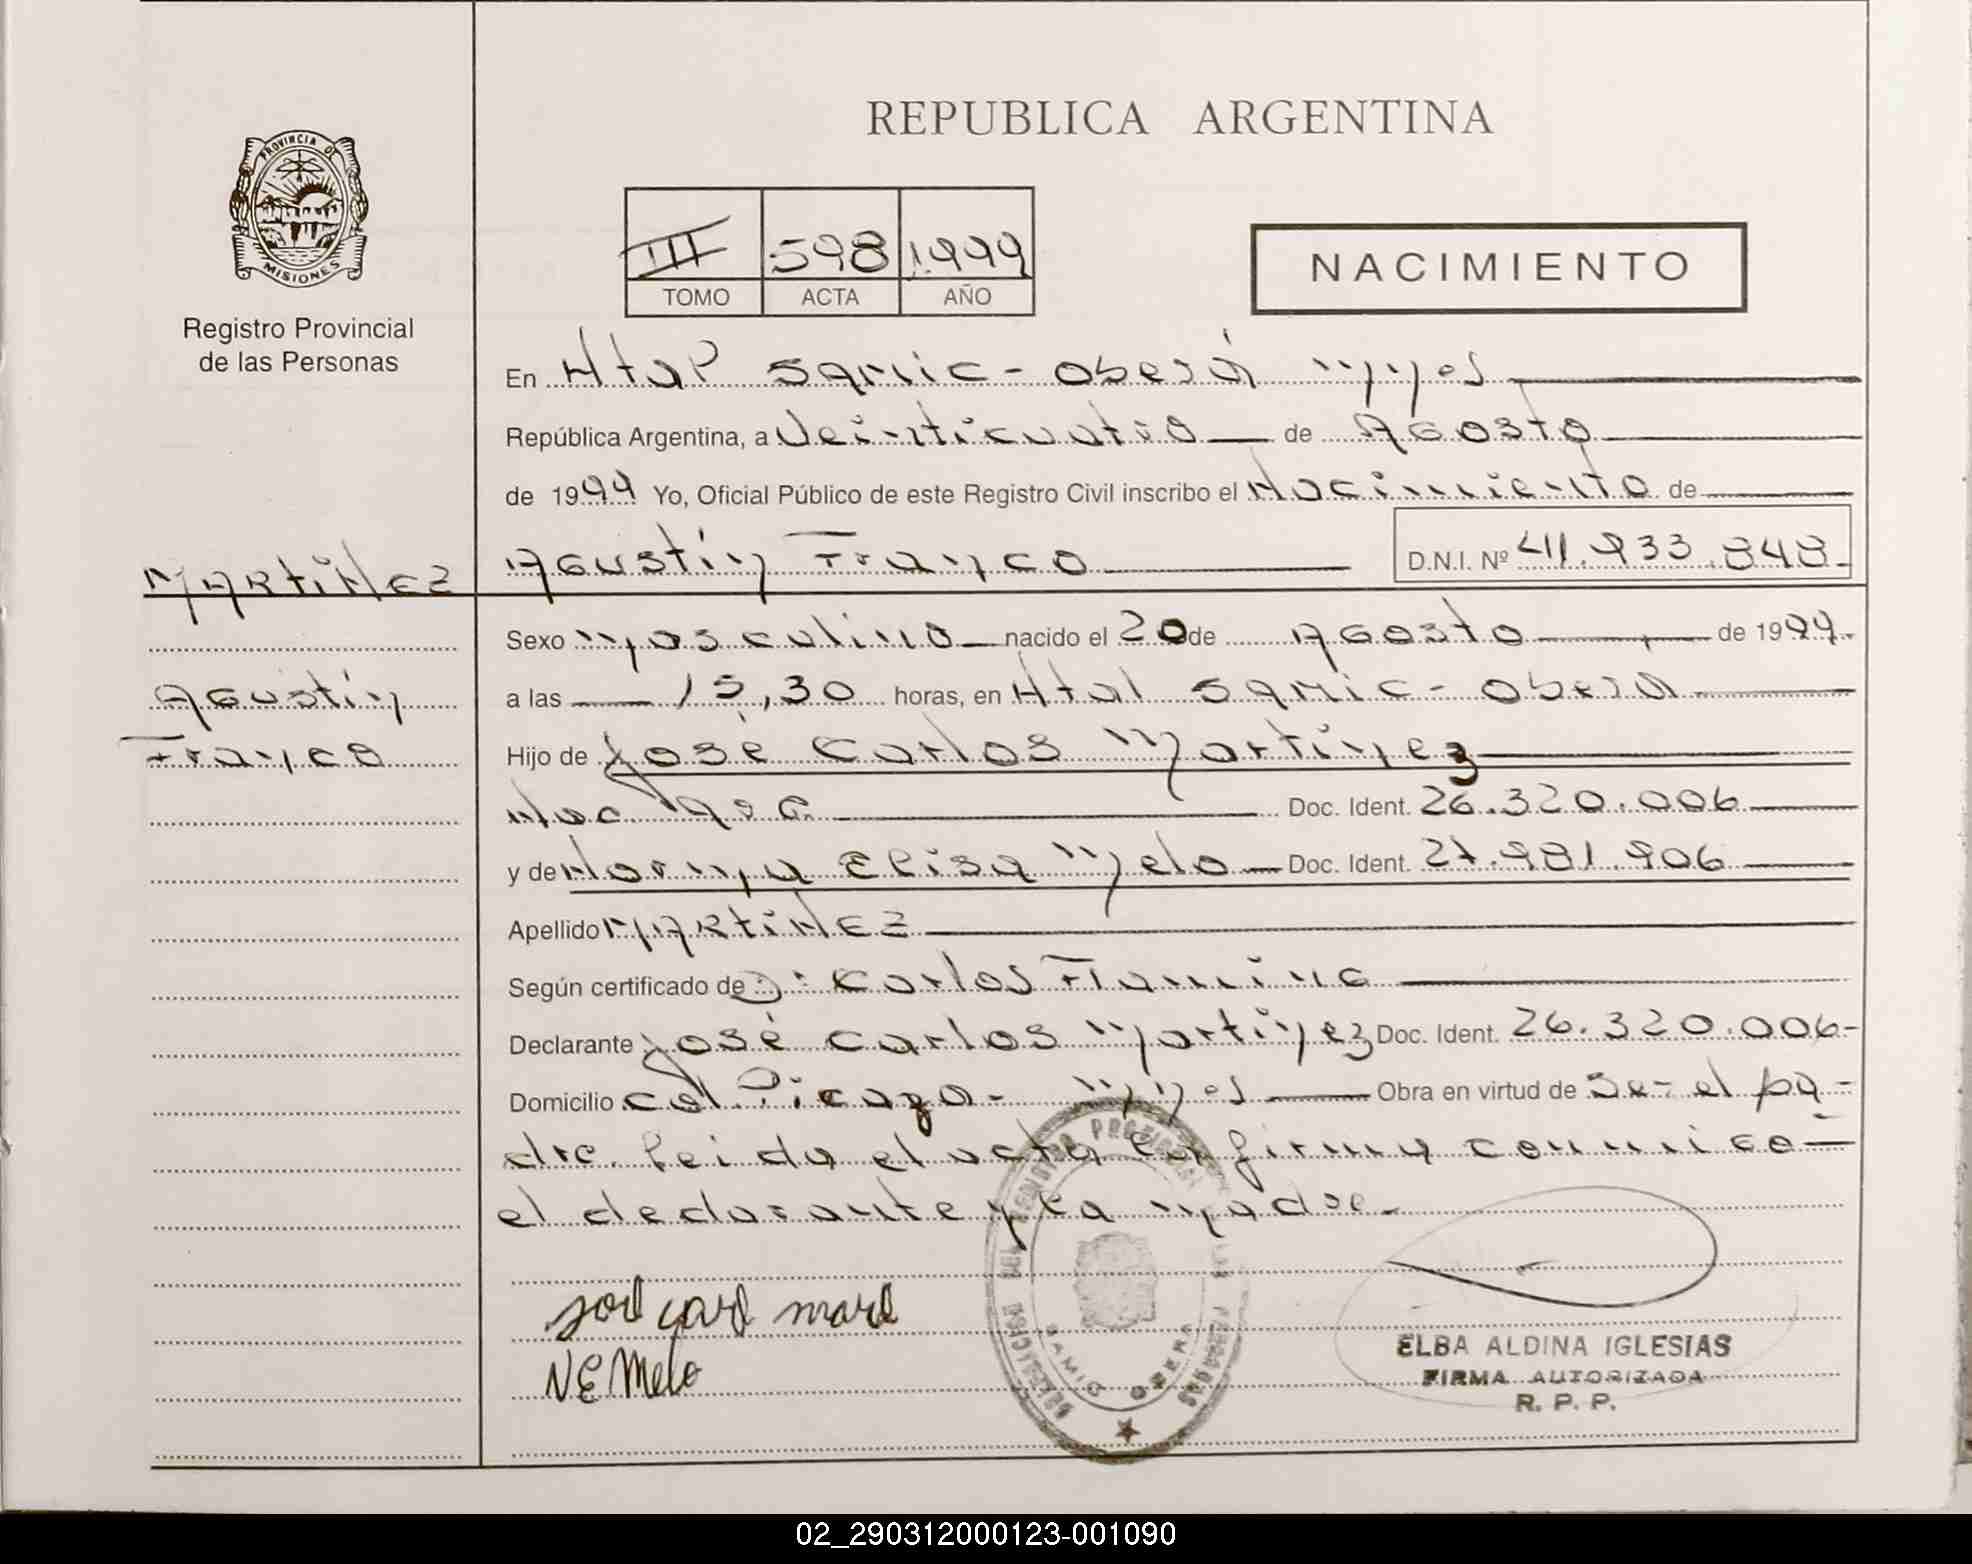 REPUBLICA ARGENTINA
PROVINCIA DE
MISIONES
Registro Provincial
de las Personas
III 598 1999
TOMO ACTA AÑO
NACIMIENTO
En Htal Samic - Oberá Mnes
República Argentina, a Veinticuatro de Agosto
de 1999 Yo, Oficial Público de este Registro Civil inscribo el Nacimiento de
Agustín Franco D.N.I. Nº 41.933.848-
MARtiNEZ
Agustín
Franco
Sexo Masculino nacido el 20 de Agosto de 1999.
a las 15,30 horas, en Htal Samic - Oberá
Hijo de José Carlos Martínez
Nac Arg. Doc. Ident. 26.320.006
y de Norma Elisa Melo Doc. Ident. 27.981.906
Apellido MARtiNEZ
Según certificado de Dr Carlos
Declarante José Carlos Martínez Doc. Ident. 26.320.006-
Domicilio Col Picaza - Mnes Obra en virtud de Ser el pa-
dre. leida el acta la firma conmigo
el declarante y la madre.
N E Melo
SAMIC OBERA
ELBA ALDINA IGLESIAS
FIRMA AUTORIZADA
R. P. P.
02_290312000123-001090